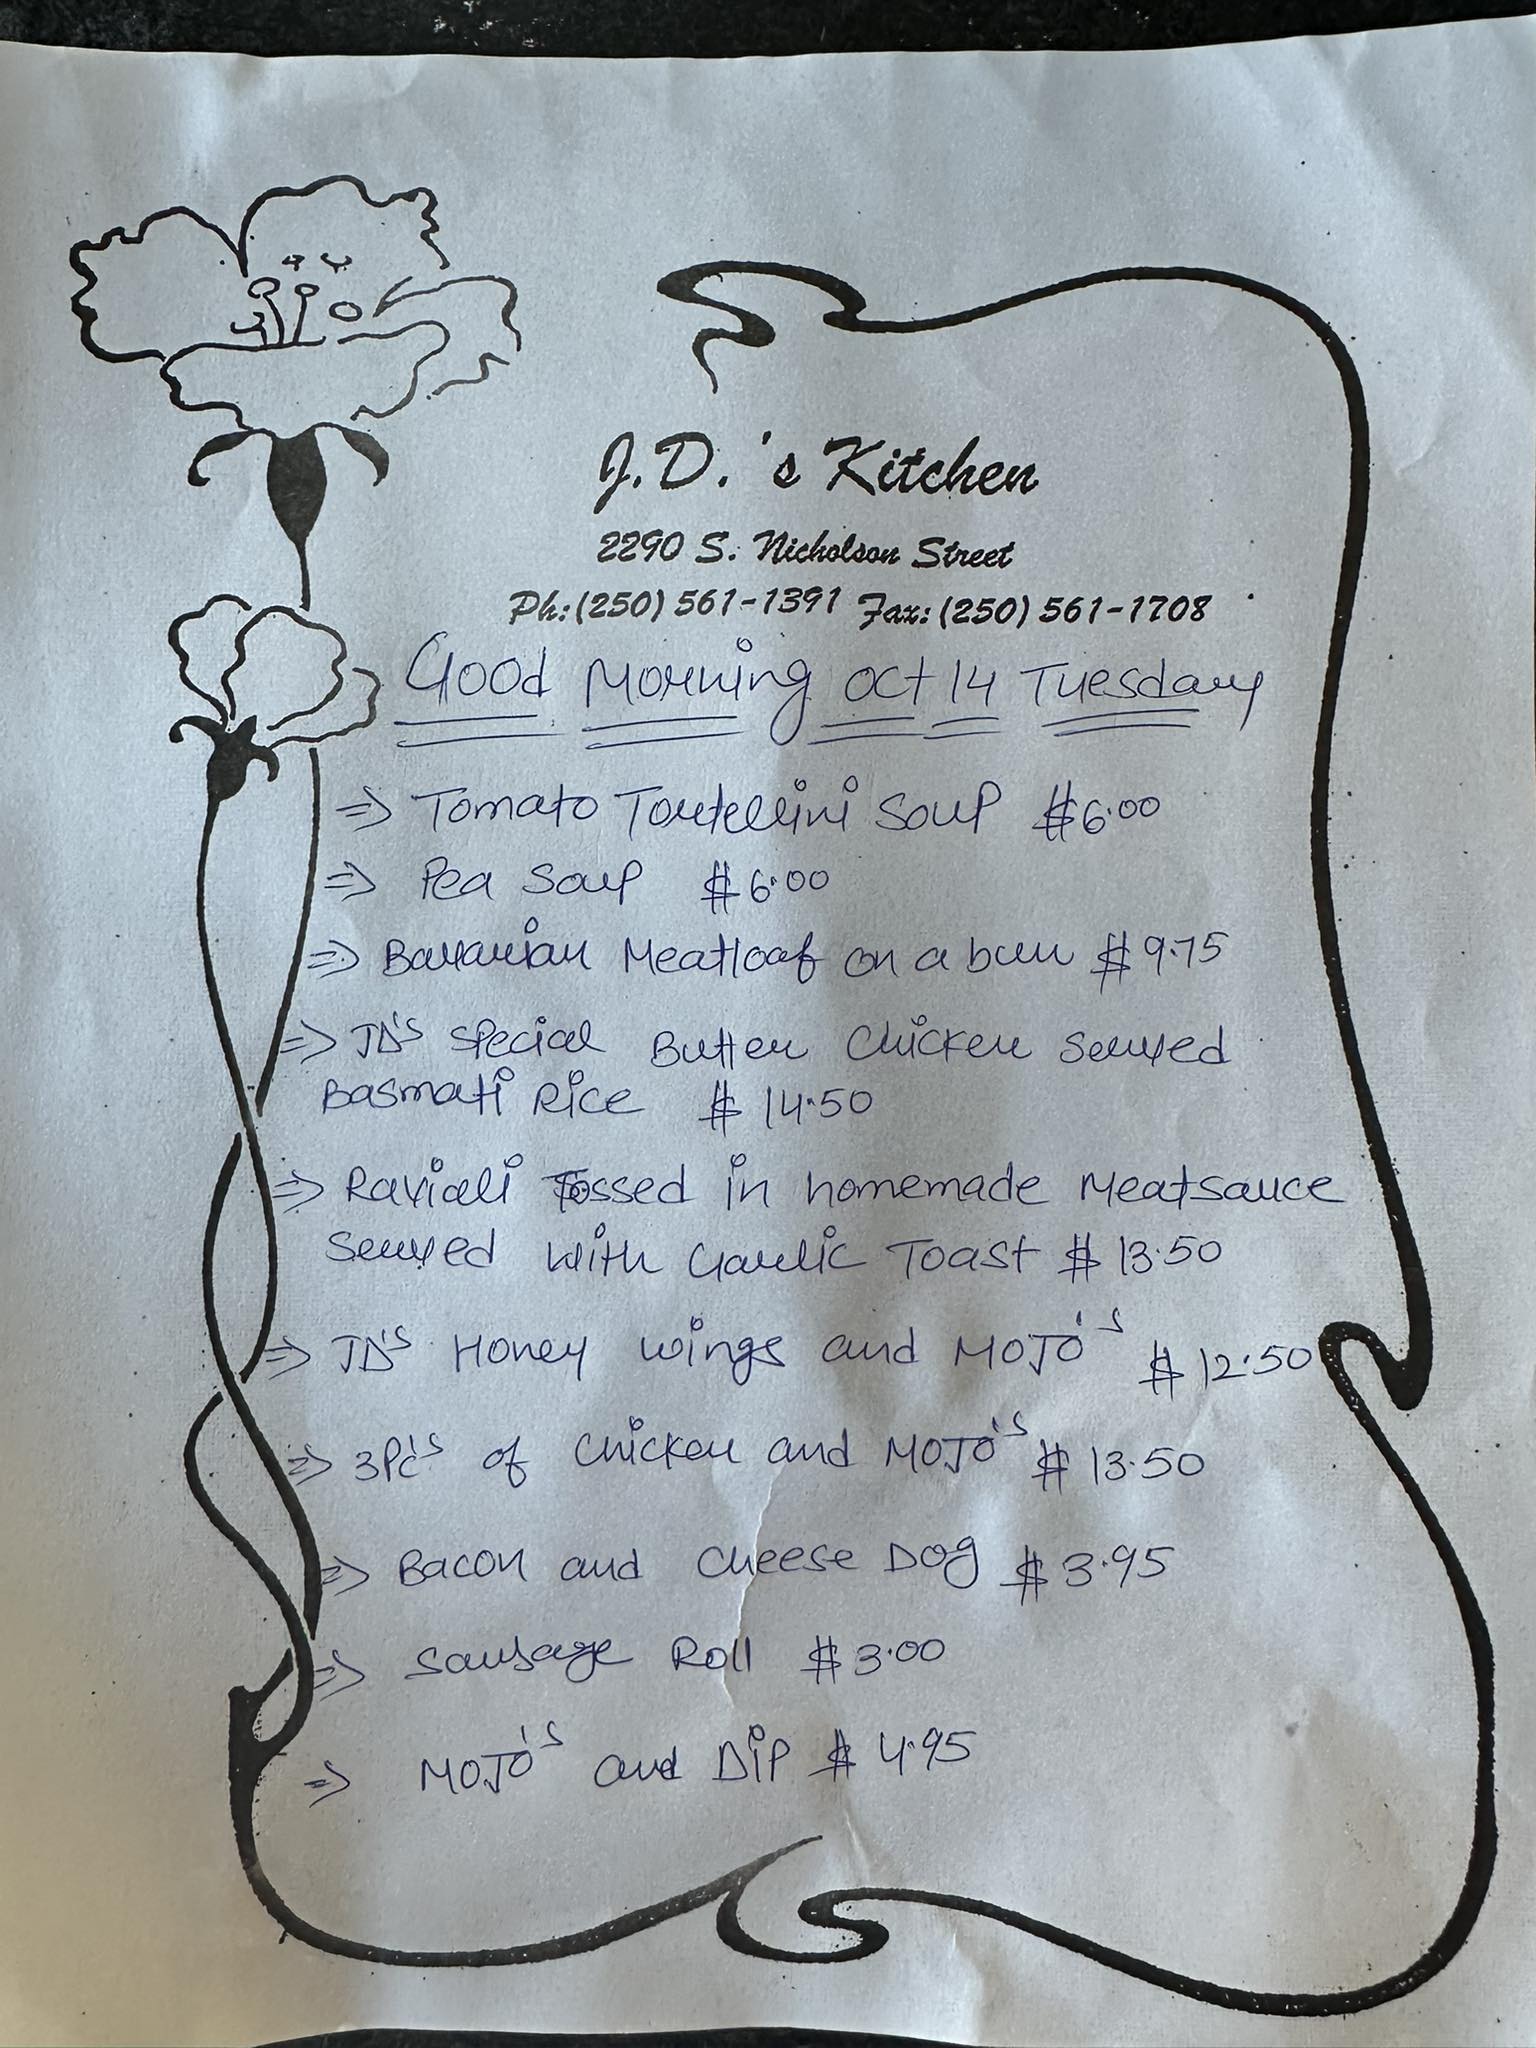 J.D.'s Kitchen
2290 S. Nicholson Street
Ph: (250) 561-1391 Fax: (250) 561-1708
Good Morning Oct 14 Tuesday
⇒ Tomato Tortellini Soup $6.00
⇒ Pea Soup $6.00
⇒ Bavarian Meatloaf on a bun $9.75
⇒ JD's Special Butter Chicken Served
Basmati Rice $14.50
⇒ Ravioli Tossed in homemade Meatsauce
Served with Garlic Toast $13.50
⇒ JD's Honey wings and MOJO's $12.50
⇒ 3Pc's of Chicken and MOJO's $13.50
⇒ Bacon and Cheese Dog $3.95
⇒ Sausage Roll $3.00
⇒ MOJO's and Dip $4.95